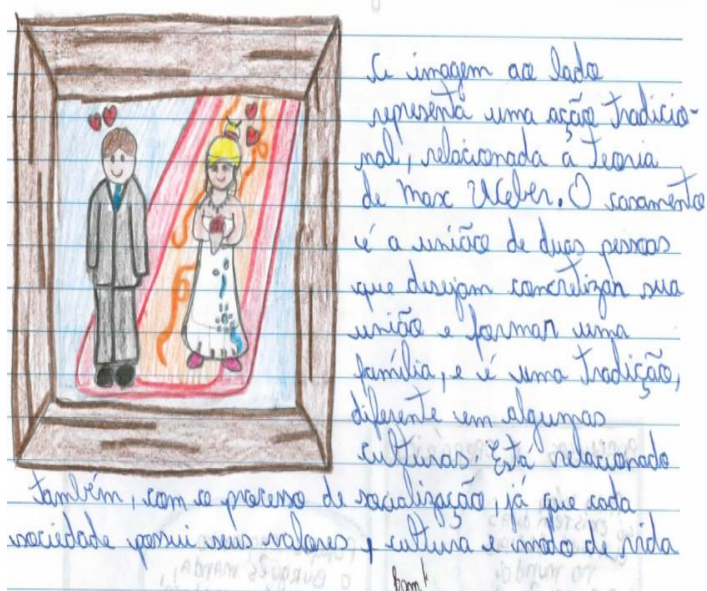 A imagem ao lado
representa uma ação tradicio-
nal, relacionada à teoria
de Max Weber. O casamento
é a união de duas pessoas
que desejam concretizar sua
união e formar uma
família, e é uma tradição,
diferente em algumas
culturas. Está relacionado
também, com o processo de socialização, já que cada
sociedade possui seus valores, cultura e modo de vida
Bom!
O BURGUÊS MANDA!